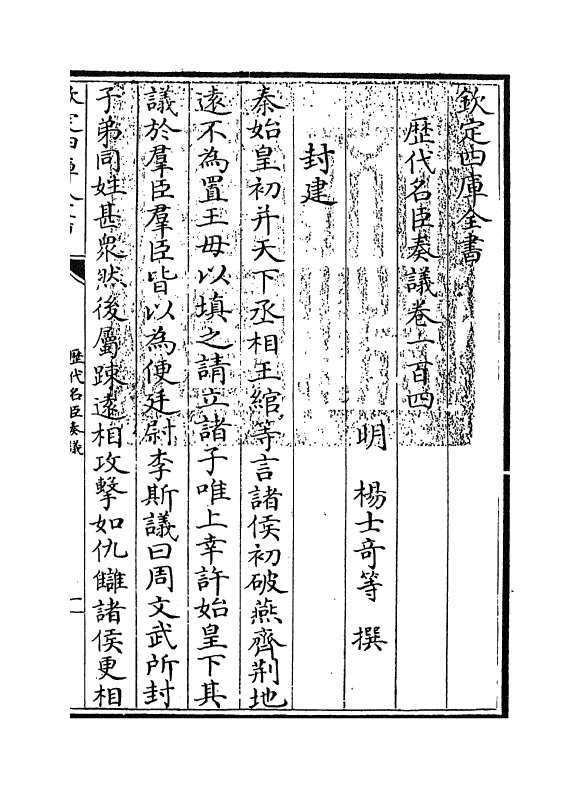 欽定四庫全書
歷代名臣奏議卷一百四
明 楊士奇等 撰
封建
秦始皇初并天下丞相王綰等言諸侯初破燕齊荆地
遠不為置王毋以填之請立諸子唯上幸許始皇下其
議於羣臣羣臣皆以為便廷尉李斯議曰周文武所封
子弟同姓甚衆然後屬踈遠相攻擊如仇讎諸侯更相
欽定四庫全書
歷代名臣奏議
一